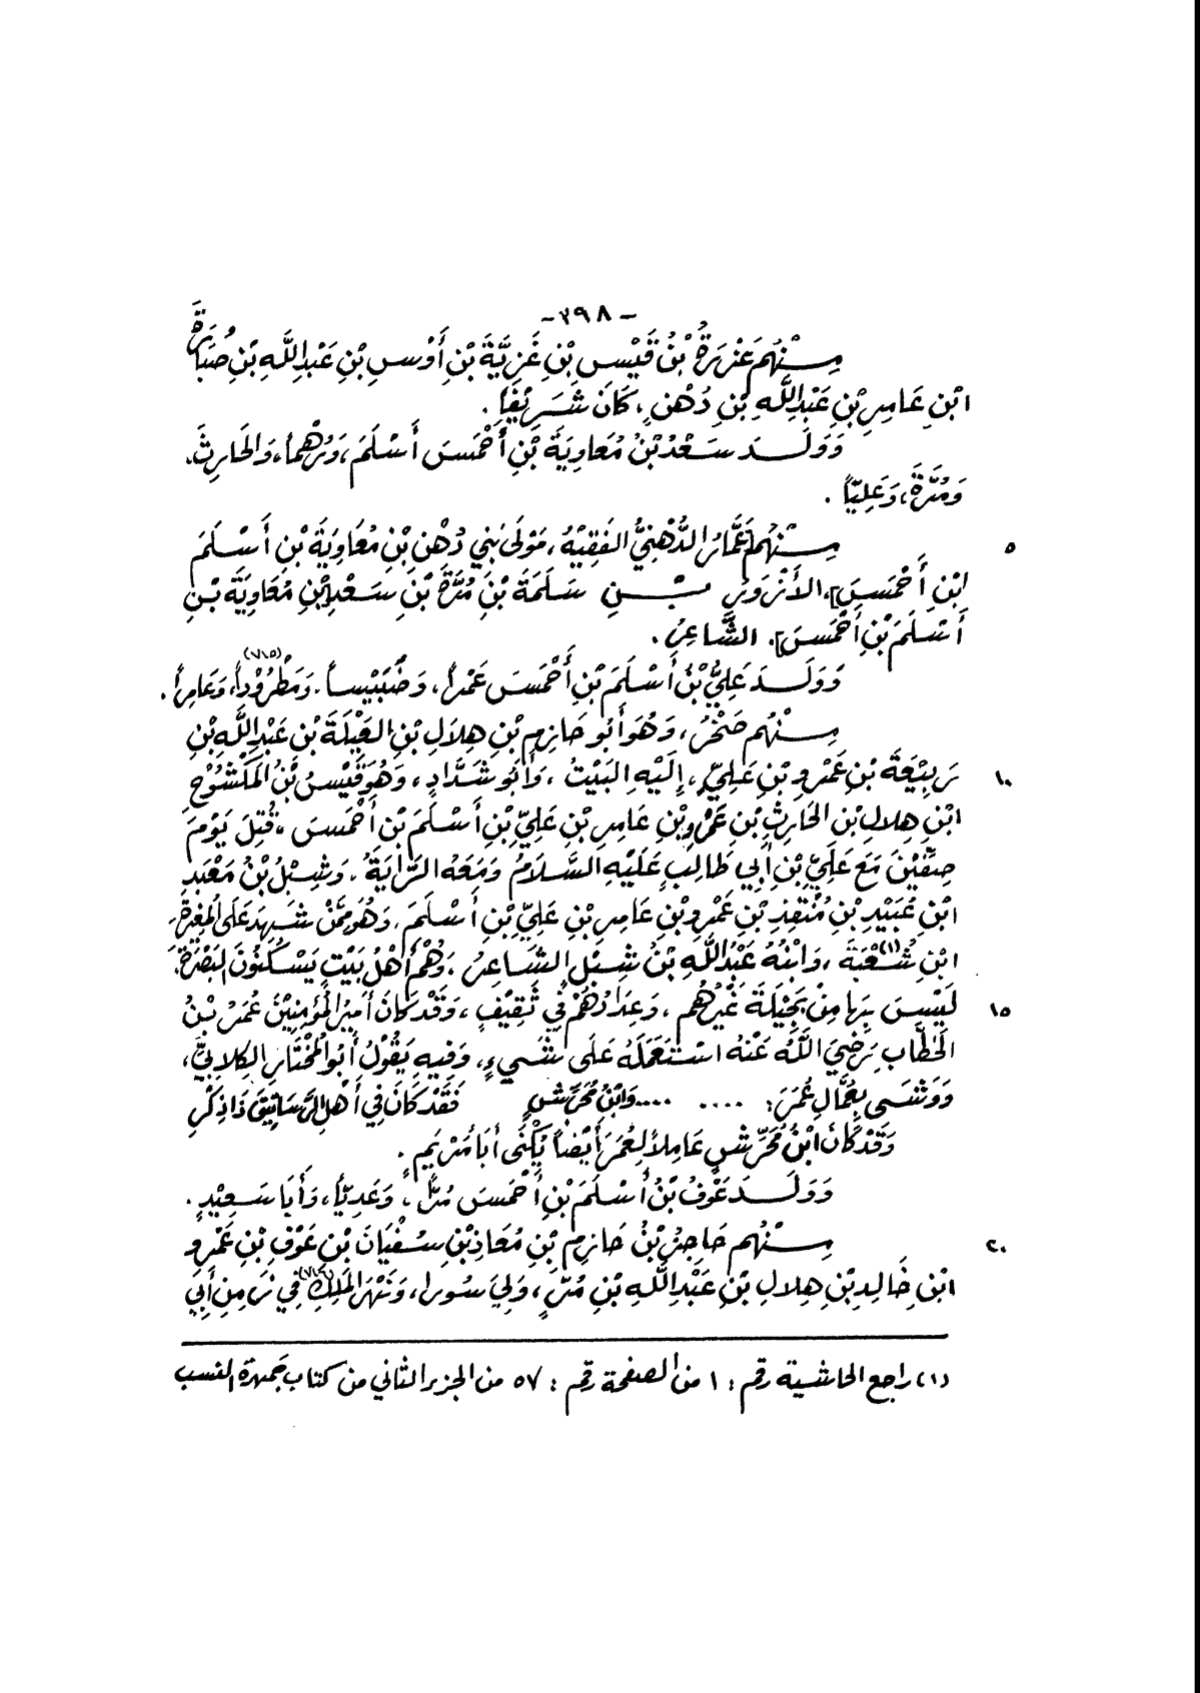 -٣٩٨-
مِنْهُم عَزْرَةُ بْنُ قَيْسِ بْنِ غَزِيَّةَ بْنِ أَوْسِ بْنِ عَبْدِ اللَّهِ بْنِ صُبَارَةَ
ابْنِ عَامِرِ بْنِ عَبْدِ اللَّهِ بْنِ دُهْنٍ، كَانَ شَرِيْفَاً.
وَوَلَدَ سَعْدُ بْنُ مُعَاوِيَةَ بْنِ أَحْمَسَ أَسْلَمَ، وَرُهْمَاً، وَالحَارِثَ،
وَمُرَّةَ، وَعَلِيَّاً.
مِنْهُم [عَمَّارُ الدُّهْنِيُّ الفَقِيْهُ، مَوْلَى بَنِي دُهْنِ بْنِ مُعَاوِيَةَ بْنِ أَسْلَمَ
٥
ابْنِ أَحْمَسَ]، الأَزْوَرُ بْنِ سَلَمَةَ بْنِ مُرَّةَ بْنِ سَعْدِ [بْنِ مُعَاوِيَةَ بْنِ
أَسْلَمَ بْنِ أَحْمَسَ]. الشَّاعِرُ.
وَوَلَدَ عَلِيُّ بْنُ أَسْلَمَ بْنِ أَحْمَسَ عَمْراً، وَضُبَيْساً، وَمَطْرُوْداً(٧١٥)، وَعَامِراً.
مِنْهُم صَخْرُ، وَهُوَ أَبُو حَازِمِ بْنِ هِلَالِ بْنِ العَيْلَةَ بْنِ عَبْدِ اللَّهِ بْنِ
رَبِيْعَةَ بْنِ عَمْرِو بْنِ عَلِيٍّ، إِلَيْهِ البَيْتُ، وَأَبُو شَدَّادٍ، وَهُوَ قَيْسُ بْنُ المَكْشُوْحِ
١٠
ابْنِ هِلَالِ بْنِ الحَارِثِ بْنِ عَمْرِو بْنِ عَامِرِ بْنِ عَلِيِّ بْنِ أَسْلَمَ بْنِ أَحْمَسَ، قُتِلَ يَوْمَ
صِفِّيْنَ مَعَ عَلِيِّ بْنِ أَبِي طَالِبٍ عَلَيْهِ السَّلَامُ وَمَعَهُ الرَّايَةُ، وَشِبْلُ بْنُ مَعْبَدِ
ابْنِ عُبَيْدِ بْنِ مُنْقِذِ بْنِ عَمْرِو بْنِ عَامِرِ بْنِ عَلِيِّ بْنِ أَسْلَمَ، وَهُوَ مِمَّنْ شَهِدَ عَلَى المُغِيْرَةِ
ابْنِ شُعْبَةَ(١)، وَابْنُهُ عَبْدُ اللَّهِ بْنُ شِبْلٍ الشَّاعِرُ، وَهُمْ أَهْلُ بَيْتٍ يَسْكُنُونَ البَصْرَةَ،
لَيْسَ بِهَا مِنْ بَجِيْلَةَ غَيْرُهُم، وَعِدَادُهُمْ فِي ثَقِيْفٍ، وَقَدْ كَانَ أَمِيْرُ المُؤمِنِيْنَ عُمَرُ بْنُ
١٥
الخَطَّابِ رَضِيَ اللَّهُ عَنْهُ اسْتَعْمَلَهُ عَلَى شَيءٍ، وَفِيهِ يَقُوْلُ أَبُو المُخْتَارِ الكِلَابِيُّ،
وَوَشَى بِعُمَّالِ عُمَرَ: .... ....وَابْنُ مُحَرِّشٍ فَقَدْ كَانَ فِي أَهْلِ الرَّسَاتِيْقِ ذَا ذِكْرِ
وَقَدْ كَانَ ابْنُ مُحَرِّشٍ عَامِلَاً لِعُمَرَ أَيْضَاً يُكْنَى أَبَا مَرْيَمٍ.
وَوَلَدَ عَوْفُ بْنُ أَسْلَمَ بْنِ أَحْمَسَ مُرَّ، وَعَدِيَّاً، وَأَبَا سَعِيْدٍ.
مِنْهُم حَاجِزُ بْنُ حَازِمِ بْنِ مُعَاذِ بْنِ سُفْيَانَ بْنِ عَوْفِ بْنِ عَمْرِو
٢٠
ابْنِ خَالِدِ بْنِ هِلَالِ بْنِ عَبْدِ اللَّهِ بْنِ مُرٍّ، وَلِيَ سُورا، وَنَهْرَ المَلِكِ(٧١٦) فِي زَمِنِ أَبِي
(١) راجع الحاشية رقم: ١ من الصفحة رقم: ٥٧ من الجزء الثاني من كتاب جَمهرة النسب